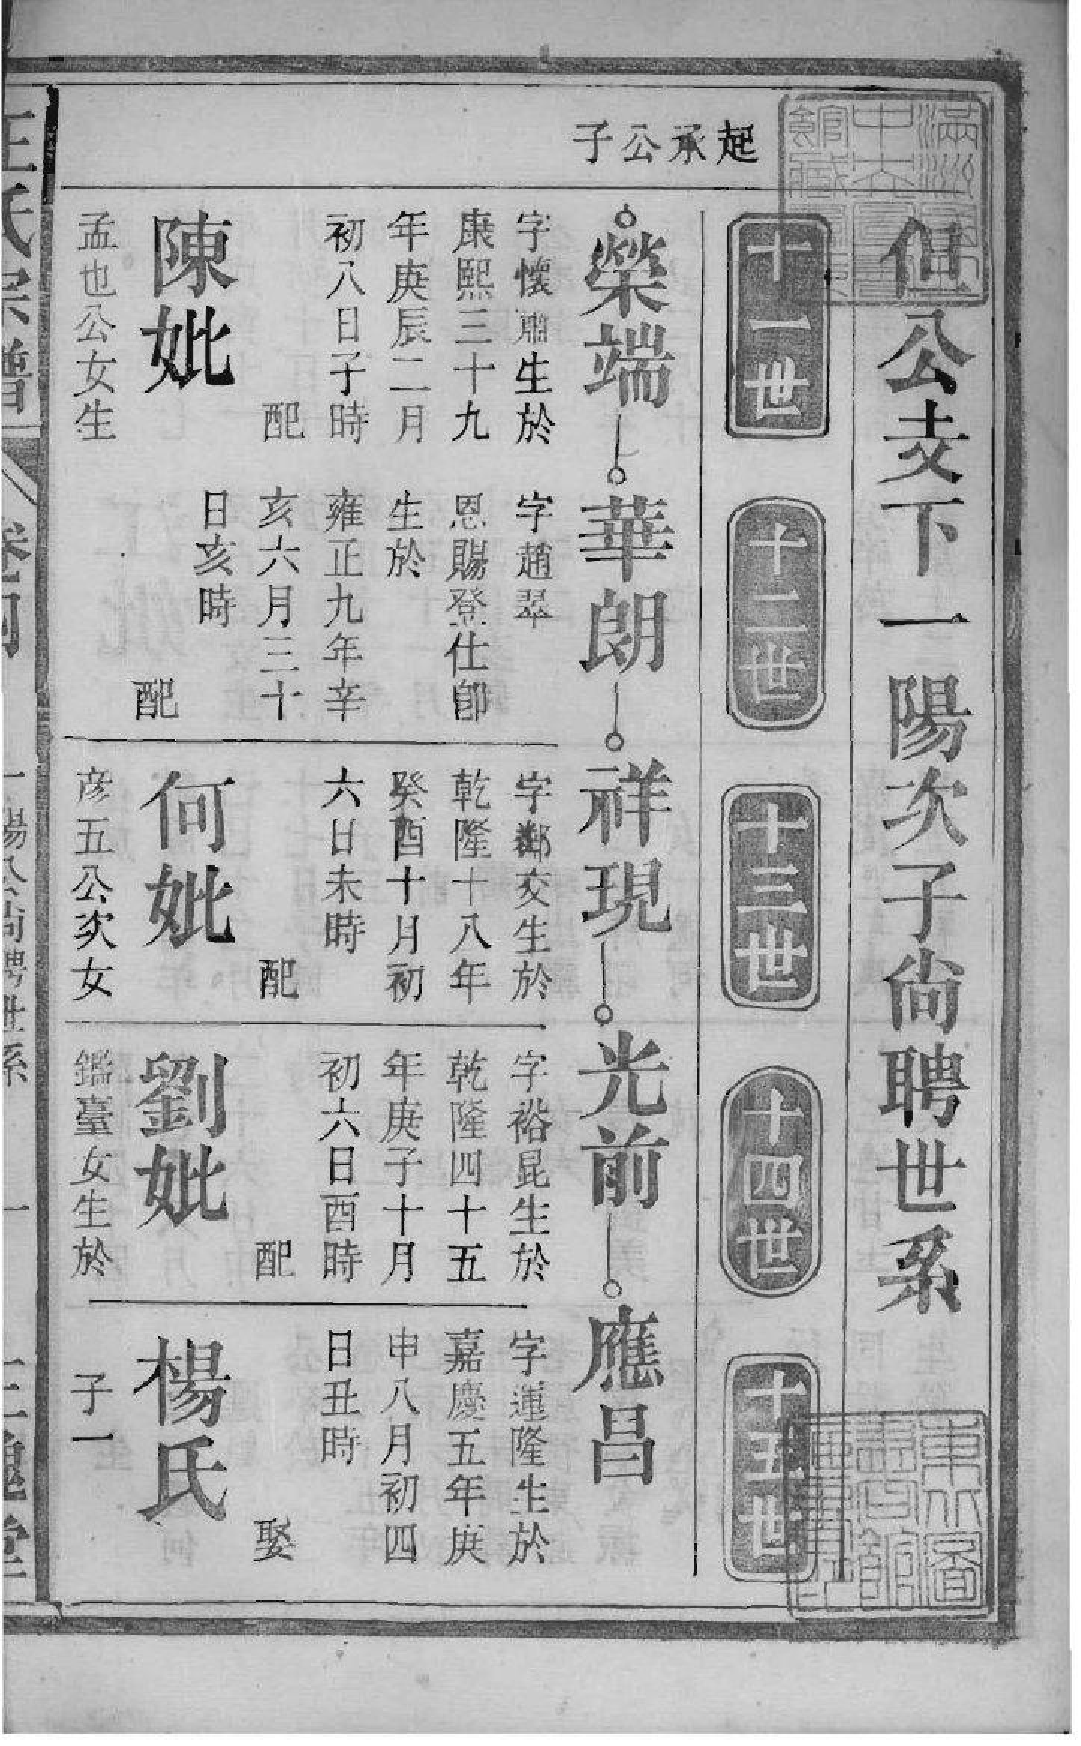 伹公支下一陽次子尙聘世系
十一世
十二世
十三世
十四世
十五世
起承公子
榮端
華朗
祥現
光前
應昌
字懷肅生於
康熙三十九
年庚辰二月
初八日子時
配
陳妣
孟也公女生
字趙翠
恩賜登仕郎
生於
雍正九年辛
亥六月三十
日亥時
配
字鄰交生於
乾隆十八年
癸酉十月初
六日未時
配
何妣
彦五公次女
字裕昆生於
乾隆四十五
年庚子十月
初六日酉時
配
劉妣
鑑臺女生於
字運隆生於
嘉慶五年庚
申八月初四
日丑時
娶
楊氏
子一
王氏宗譜
卷四
一陽公尚聘世系
一
三槐堂